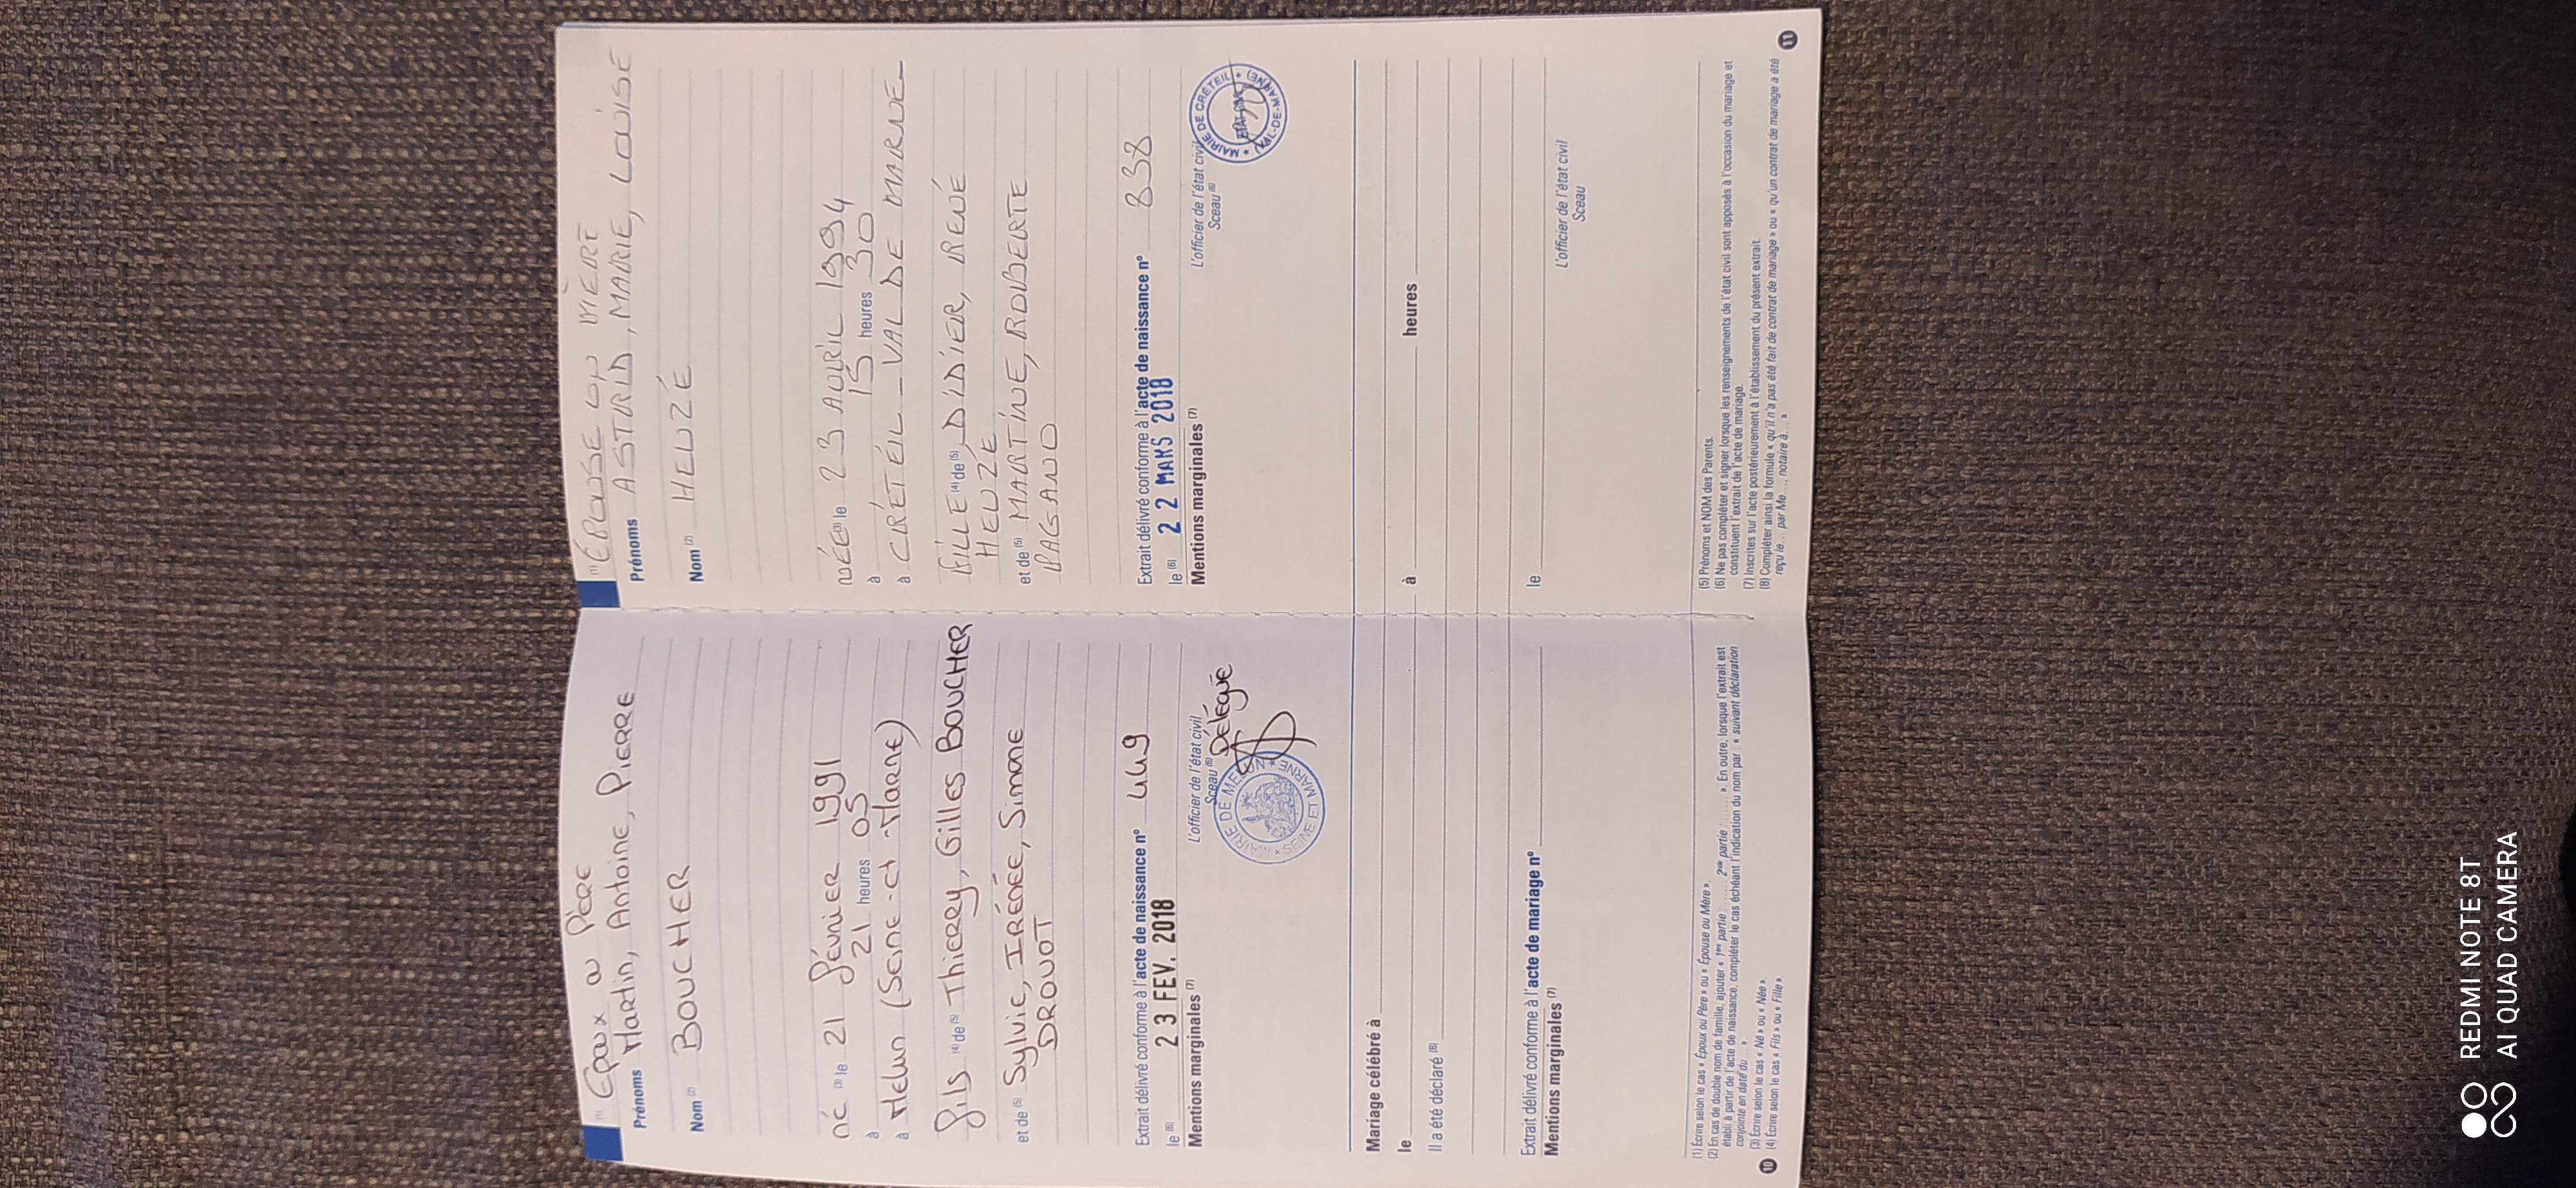 (1) Epoux ou Père
Prénoms Martin, Antoine, Pierre
Nom (2) BOUCHER
né (3) le 21 février 1991
à 21 heures 05
à Melun (Seine-et-Marne)
fils (4) de (5) Thierry, Gilles BOUCHER
et de (5) Sylvie, Irénée, Simone
DROUOT
Extrait délivré conforme à l'acte de naissance n° 449
le (6) 23 FEV. 2018
L'officier de l'état civil
Sceau (6)
DÉLÉGUÉ
Mentions marginales (7)
MAIRIE DE MELUN
SEINE ET MARNE
(1) ÉPOUSE OU MÈRE
Prénoms ASTRID, MARIE, LOUISE
Nom (2) HEUZÉ
NÉE (3) le 23 AVRIL 1994
à 15 heures 30
à CRÉTEIL _ VAL DE MARNE_
FILLE (4) de (5) DIDIER, IRENÉ
HEUZÉ
et de (5) MARTINE, ROBERTE
PAGANO
Extrait délivré conforme à l'acte de naissance n° 838
le (6) 22 MARS 2018
L'officier de l'état civil
Sceau (6)
Mentions marginales (7)
MAIRIE DE CRÉTEIL
ÉTAT CIVIL
(VAL-DE-MARNE)
Mariage célébré à
le à heures
Il a été déclaré (8)
Extrait délivré conforme à l'acte de mariage n° le
Mentions marginales (7)
L'officier de l'état civil
Sceau
(1) Écrire selon le cas « Époux ou Père » ou « Épouse ou Mère ».
(2) En cas de double nom de famille, ajouter « 1ère partie : ........ 2nde partie : ........ ». En outre, lorsque l'extrait est
établi à partir de l'acte de naissance, compléter le cas échéant l'indication du nom par : « suivant déclaration
conjointe en date du ... »
(3) Écrire selon le cas « Né » ou « Née ».
(4) Écrire selon le cas « Fils » ou « Fille ».
10
(5) Prénoms et NOM des Parents.
(6) Ne pas compléter et signer lorsque les renseignements de l'état civil sont apposés à l'occasion du mariage et
constituent l'extrait de l'acte de mariage.
(7) Inscrites sur l'acte postérieurement à l'établissement du présent extrait.
(8) Compléter ainsi la formule « qu'il n'a pas été fait de contrat de mariage » ou « qu'un contrat de mariage a été
reçu le ... par Me ..., notaire à ... »
11
REDMI NOTE 8T
AI QUAD CAMERA